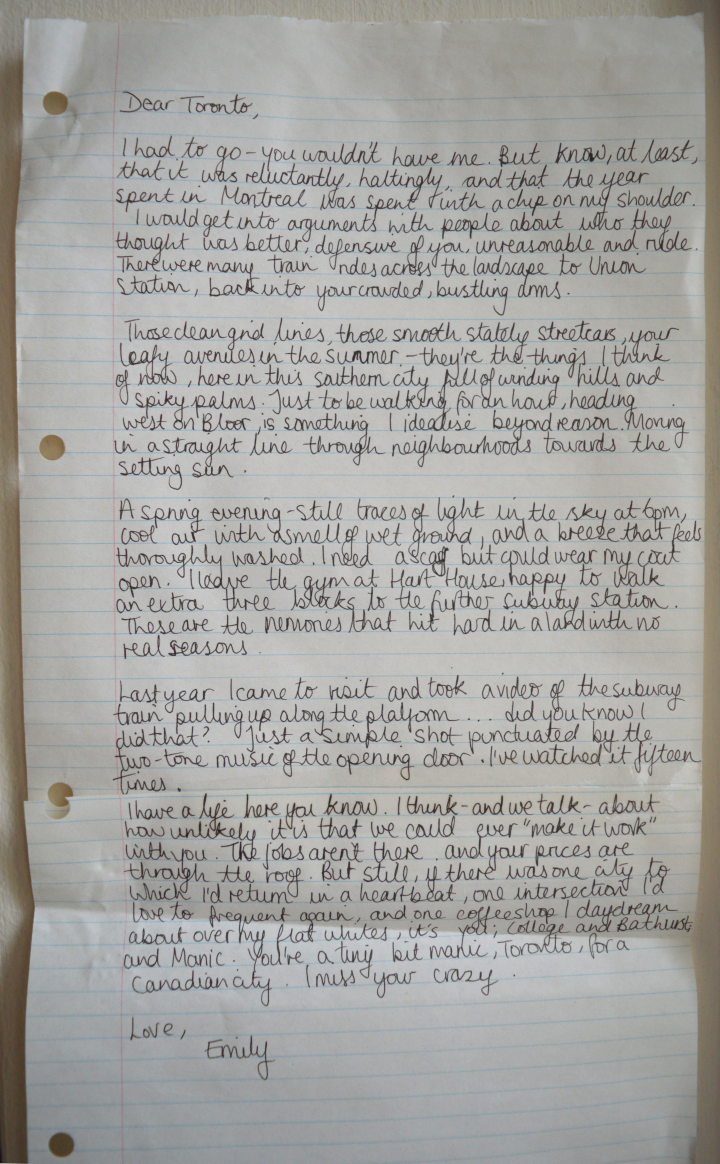 Dear Toronto,
I had to go - you wouldn't have me. But know, at least,
that it was reluctantly, haltingly, and that the year
spent in Montreal was spent with a chip on my shoulder.
I would get into arguments with people about who they
thought was better, defensive of you, unreasonable and rude.
There were many train rides across the landscape to Union
Station, back into your crowded, bustling arms.
Those clean grid lines, those smooth stately streetcars, your
leafy avenues in the summer - they're the things I think
of now, here in this southern city full of winding hills and
spiky palms. Just to be walking for an hour, heading
west on Bloor, is something I idealise beyond reason. Moving
in a straight line through neighbourhoods towards the
setting sun.
A spring evening - still traces of light in the sky at 6pm,
cool air with a smell of wet ground, and a breeze that feels
thoroughly washed. I need a scarf but could wear my coat
open. I leave the gym at Hart House, happy to walk
an extra three blocks to the further subway station.
These are the memories that hit hard in a land with no
real seasons.
Last year I came to visit and took a video of the subway
train pulling up along the platform... did you know I
did that? Just a simple shot punctuated by the
two-tone music of the opening door. I've watched it fifteen
times.
I have a life here you know. I think - and we talk - about
how unlikely it is that we could ever "make it work"
with you. The jobs aren't there, and your prices are
through the roof. But still, if there was one city to
which I'd return in a heartbeat, one intersection I'd
love to frequent again, and one coffeeshop I daydream
about over my flat whites, it's you; College and Bathurst;
and Manic. You're a tiny bit manic, Toronto, for a
Canadian city. I miss your crazy.
Love,
Emily